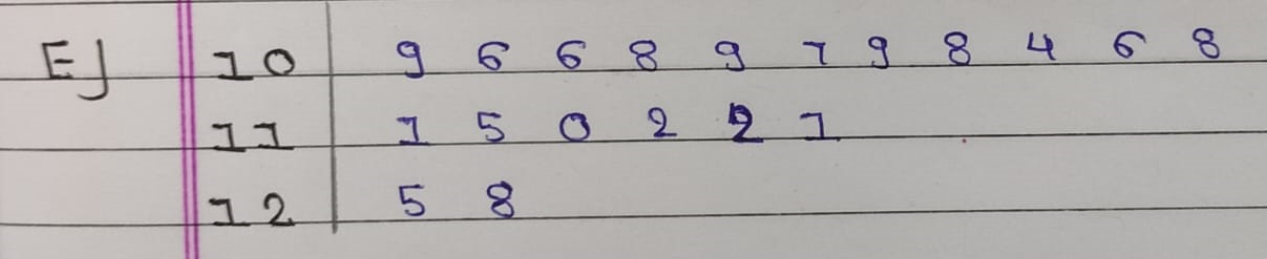 EJ 10 | 9 6 6 8 9 7 9 8 4 6 8
11 | 1 5 0 2 2 1
12 | 5 8